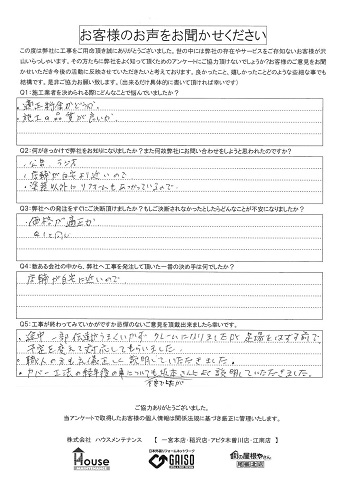 お客様のお声をお聞かせください
この度は弊社に工事をご用命頂き誠にありがとうございました。世の中には弊社の存在やサービスをご存知ないお客様が沢
山いらっしゃいます。その方たちに弊社をよく知って頂くためのアンケートにご協力頂けないでしょうか?お客様のご意見をお聞
かせいただき今後の活動に反映させていただきたいと考えております。良かったこと、嬉しかったことどのような些細な事でも
結構です。是非ご協力お願い致します。(出来るだけ具体的に書いて頂ければ幸いです)
Q1:施工業者を決められる際にどんなことで悩んでいましたか?
・適正料金かどうか。
・施工の品質が良いか。
Q2:何がきっかけで弊社をお知りになりましたか?また何故弊社にお問い合わせをしようと思われたのですか?
・広告 ラジオ
・店舗が自宅より近いので
・塗装以外にリフォームもあつかっているので
Q3:弊社への発注をすぐにご決断頂けましたか?もしご決断されなかったとしたらどんなことが不安になりましたか?
・価格が適正か
Q1と同じ
Q4:数ある会社の中から、弊社へ工事を発注して頂いた一番の決め手は何でしたか?
店舗が自宅に近いので
Q5:工事が終わってみていかがですか忌憚のないご意見を頂戴出来ましたら幸いです。
・途中一部伝達がうまくいかず クレームになりましたが 足場をはずす前で、
予定を変えて対応してもらいました。
・職人の方も礼儀正しく説明していただきました。
・カバー工法の経年後の事についても
説明していただきました。
ご協力ありがとうございました。
当アンケートで取得したお客様の個人情報は関係法規に基づき厳正に管理いたします。
株式会社 ハウスメンテナンス 【 一宮本店・稲沢店・アピタ木曽川店・江南店 】
House
MAINTENANCE
日本外装リフォームネットワーク
GAISO
街の屋根やさん
尾張北店